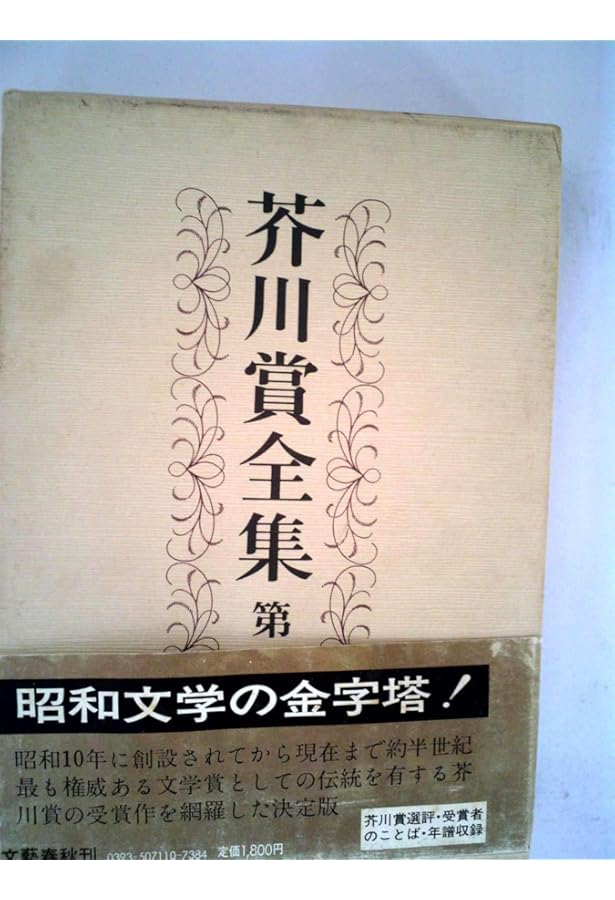 芥川賞全集 第
昭和文学の金字塔!
昭和10年に創設されてから現在まで約半世紀
最も権威ある文学賞としての伝統を有する芥
川賞の受賞作を網羅した決定版
芥川賞選評・受賞者
のことば・年譜収録
文藝春秋刊 0393-507110-7384 定価1,800円